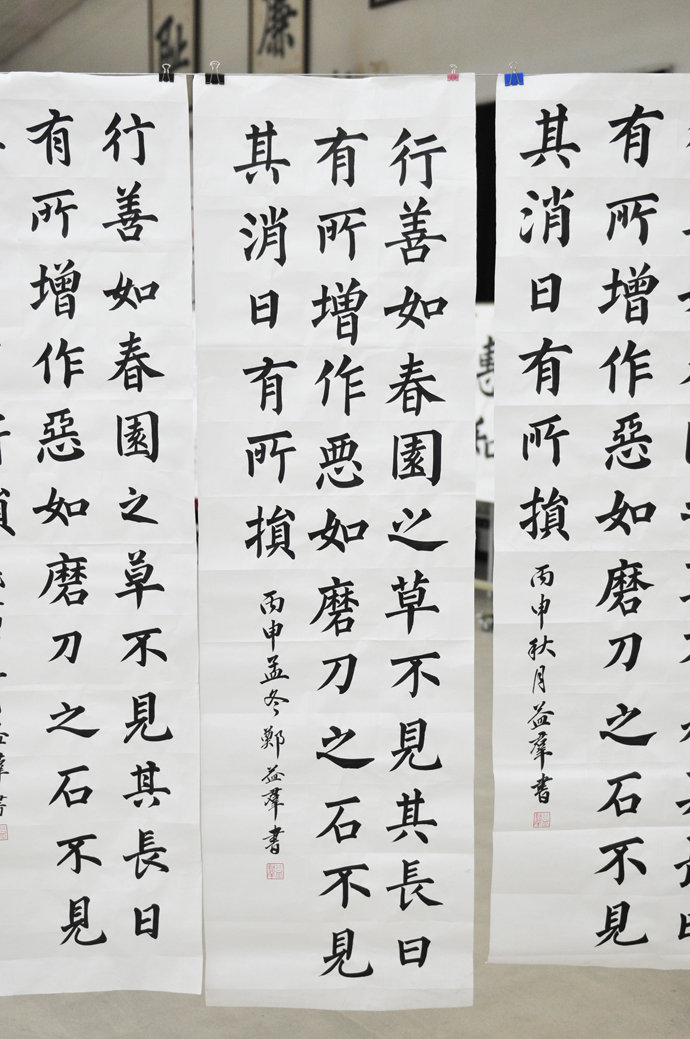 廉
耻
有所增作惡如磨刀之石不見
其消日有所損
丙申秋月益羣書
行善如春園之草不見其長日
有所增作悪如磨刀之石不見
其消日有所損
丙申孟冬鄭益羣書
行善如春園之草不見其長日
有所增作惡如磨刀之石不見